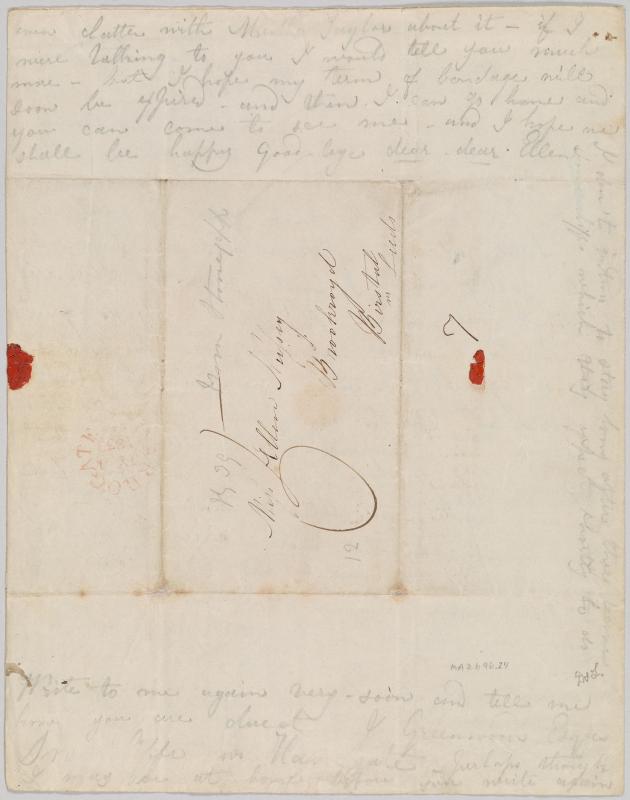 ever clatter with Martha Taylor about it – if I
were talking to you I would tell you much
more – but I hope my term of bondage will
soon be expired – and then I can go home and
you can come to see me – and I hope we
shall be happy Good-bye dear dear Ellen
I don't intend to stay long after they leave
which they expect shortly to do
1839) From Stonegappe
Miss Ellen Nussey
Brookroyd
Birstal
nr Leeds
7
12
MA 2696.24
Write to me again very soon and tell me
how you are direct J Greenwood Esqre
Swarcliffe nr Harrogate perhaps though
I may be at home before you write again